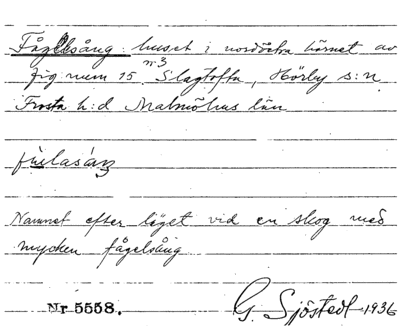 Fågelsång huset i nordöstra hörnet av
fig num 15 n:3 Slagtofta, Hörby s:n
Frosta h:d Malmöhus län
fúelasáŋ
Namnet efter läget vid en skog med
mycken fågelsång
Nr 5558. G. Sjöstedt 1936